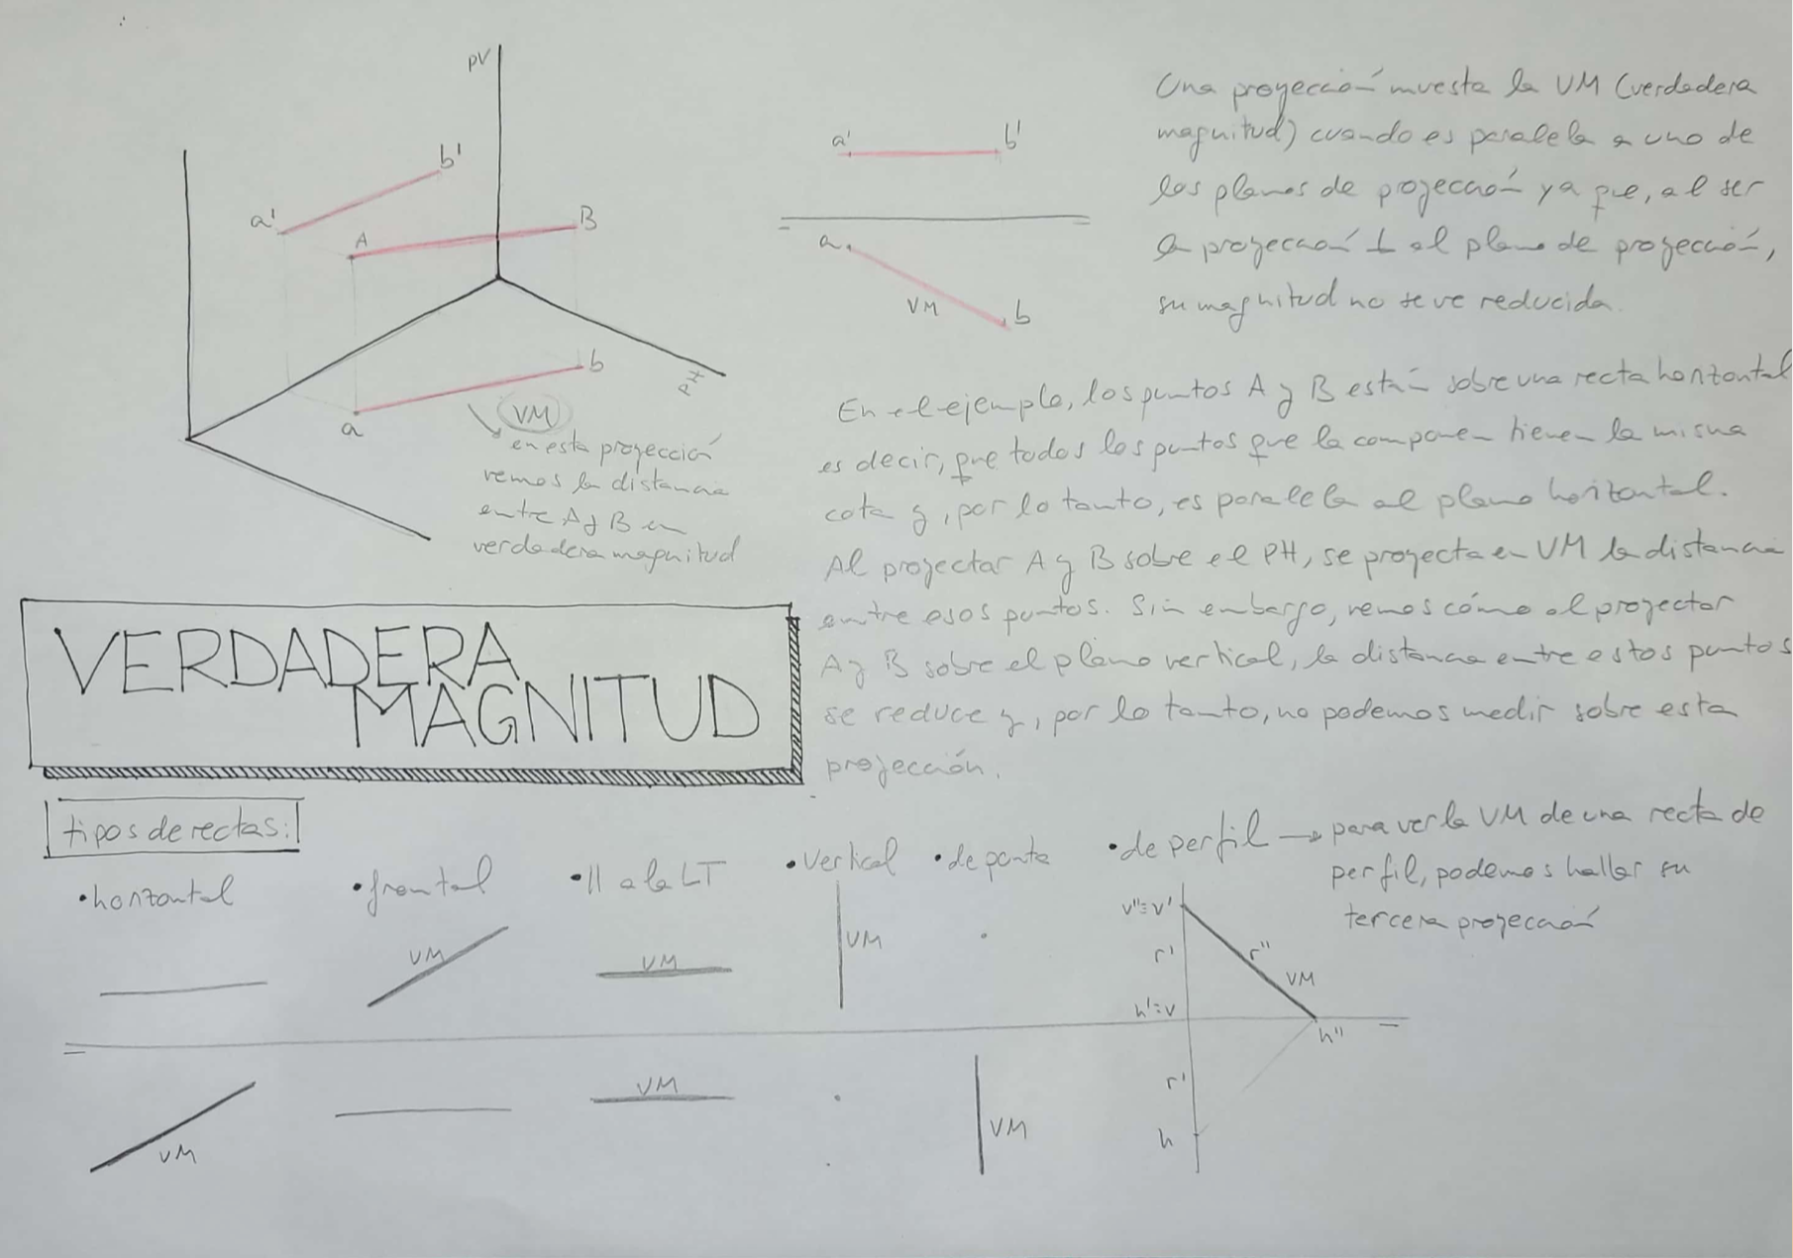 PV
a'
b'
A
B
a
b
PH
VM
en esta proyección
vemos la distancia
entre A y B en
verdadera magnitud
a'
b'
a
b
VM
Una proyección muesta la VM (verdadera
magnitud) cuando es paralela a uno de
los planos de proyección ya que, al ser
la proyección ⊥ al plano de proyección,
su magnitud no se ve reducida.
En el ejemplo, los puntos A y B están sobre una recta horizontal
es decir, que todos los puntos que la componen tienen la misma
cota y, por lo tanto, es paralela al plano horizontal.
Al proyectar A y B sobre el PH, se proyecta en VM la distancia
entre esos puntos. Sin embargo, vemos cómo al proyectar
A y B sobre el plano vertical, la distancia entre estos puntos
se reduce y, por lo tanto, no podemos medir sobre esta
proyección.
VERDADERA
MAGNITUD
tipos de rectas:
•horizontal
VM
•frontal
VM
•|| a la LT
VM
VM
•vertical
VM
•de punta
VM
•de perfil → para ver la VM de una recta de
perfil, podemos hallar su
tercera proyección
v''≡v'
r'
r''
VM
h'≡v
h''
r'
h